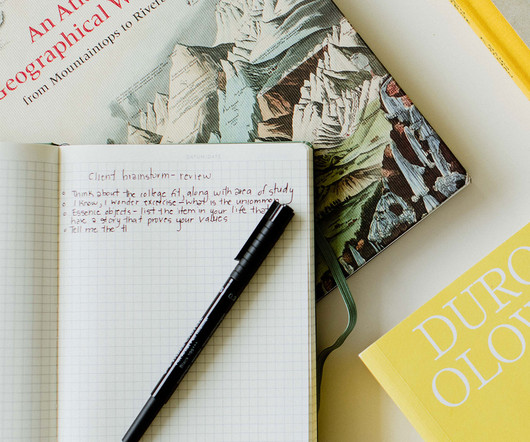 An At
Geographical W
from Mountaintops to River
Client brainstorm - review
Think about the college fit, along with area of study
I know, I wonder exercise - what is the uncommon
Essence objects - list the item in your life tha
have a story that proves your values
Tell me the tl
DURO
OLO